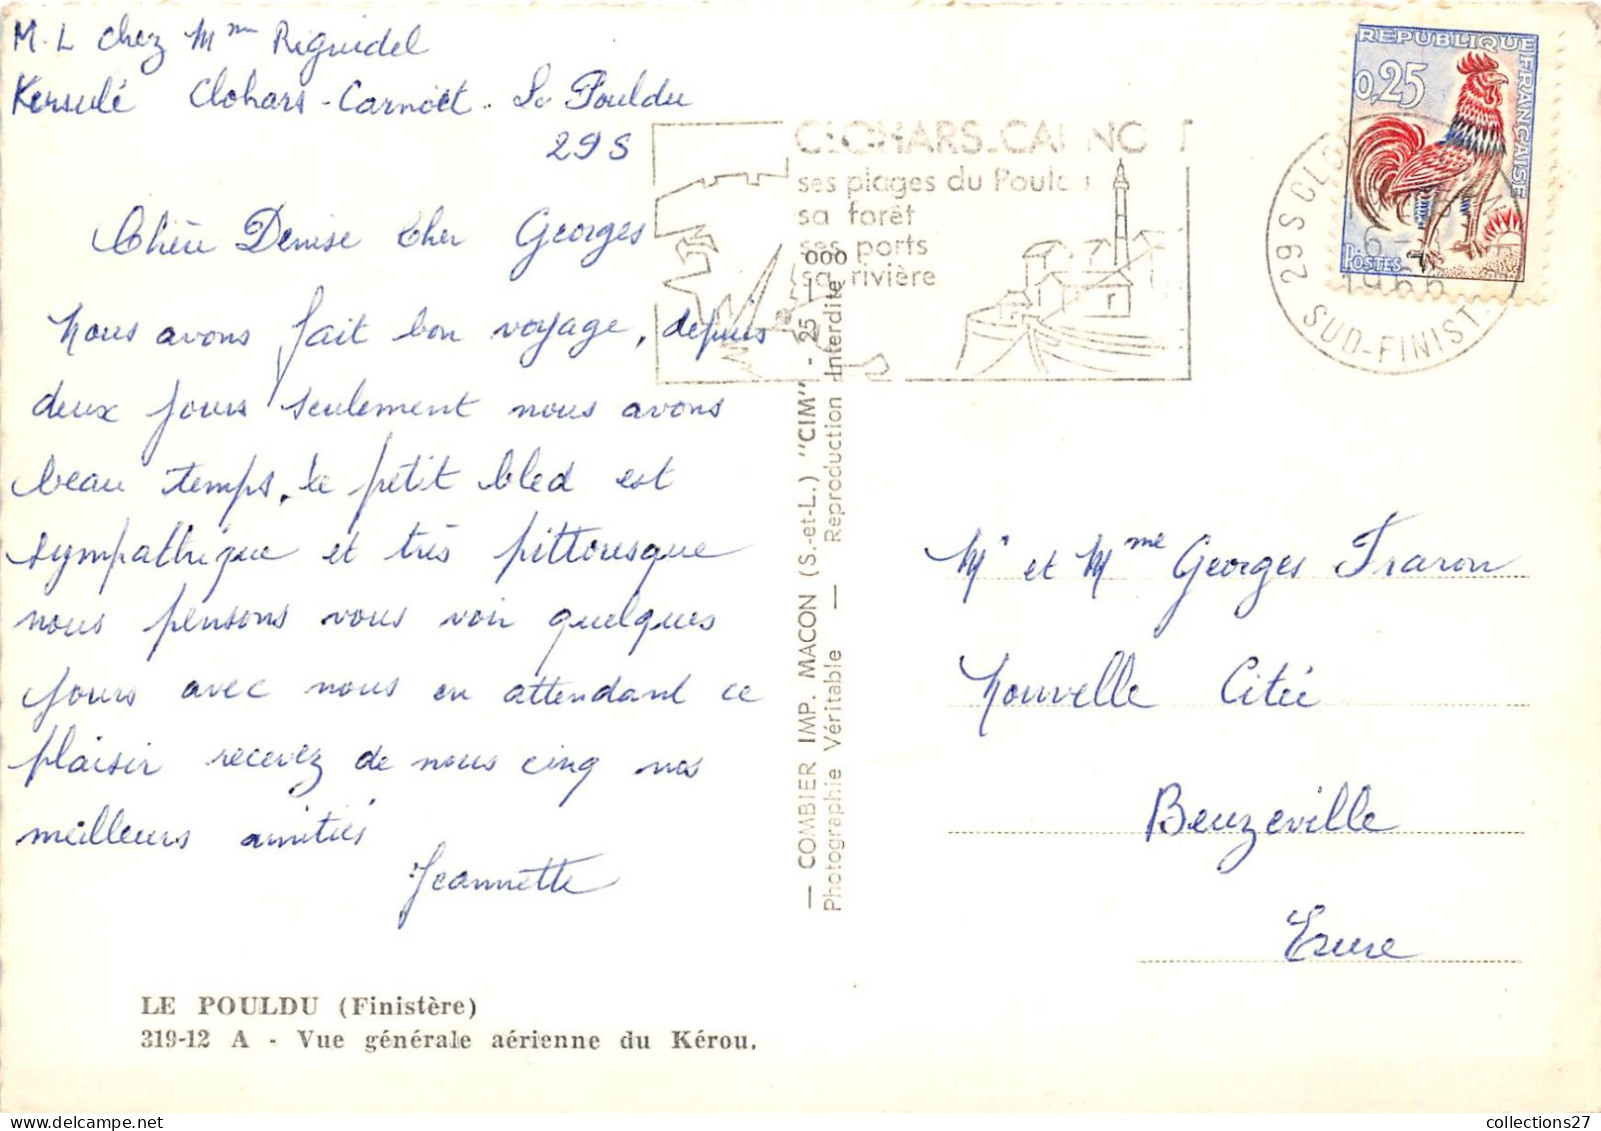 M. L chez Mme Riguidel
Kersulé Clohars-Carnoët. Le Pouldu
29 S
Chère Denise Cher Georges
Nous avons fait bon voyage, depuis
deux jours seulement nous avons
beau temps, le petit bled est
sympathique et très pittoresque
nous pensons vous voir quelques
jours avec nous en attendant ce
plaisir recevez de nous cinq nos
meilleurs amitiés
Jeannette
LE POULDU (Finistère)
319-12 A - Vue générale aérienne du Kérou.
— COMBIER IMP. MACON (S.-et-L.) "CIM" - 25 - 000
Photographie Véritable — Reproduction Interdite
CLOHARS-CARNOËT
ses plages du Pouldu
sa forêt
ses ports
sa rivière
REPUBLIQUE FRANÇAISE
0,25
POSTES
29 S CLO
1966
SUD-FINIST.
Mr et Mme Georges Fraron
Nouvelle Citée
Beuzeville
Eure
collections27